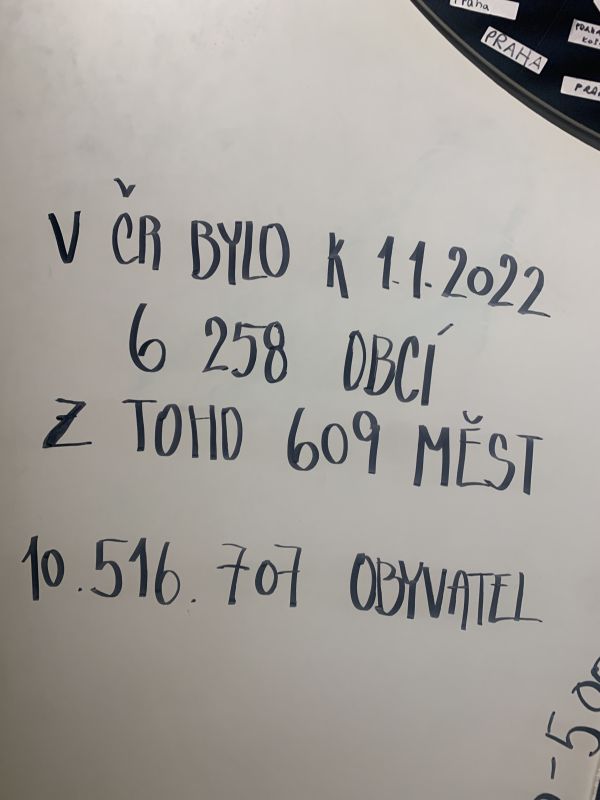 Praha
PRAHA
V ČR BYLO K 1.1.2022
6 258 OBCÍ
Z TOHO 609 MĚST
10.516.707 OBYVATEL